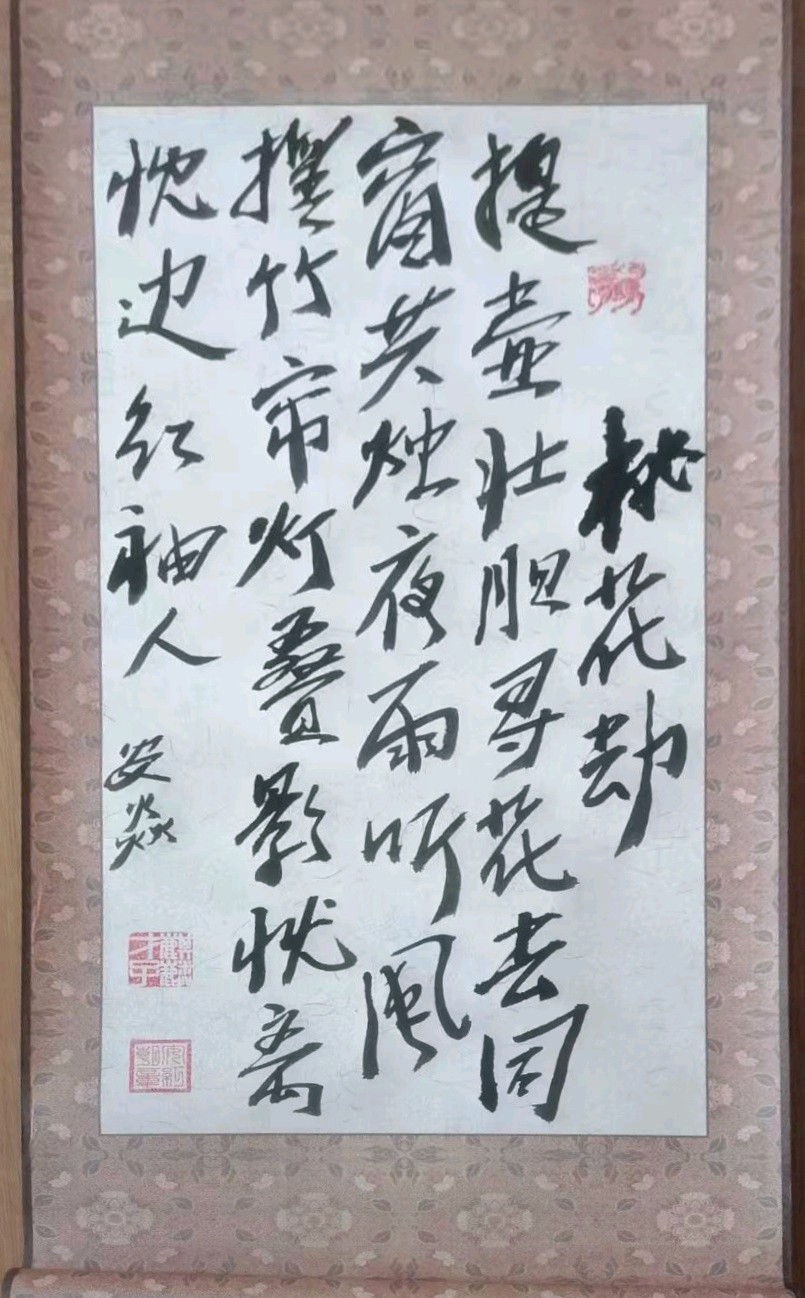 桃花劫
提壶壮胆寻花去同
窗共烛夜雨听风
竹帘灯叠影恍离
忱边红袖人
安焱